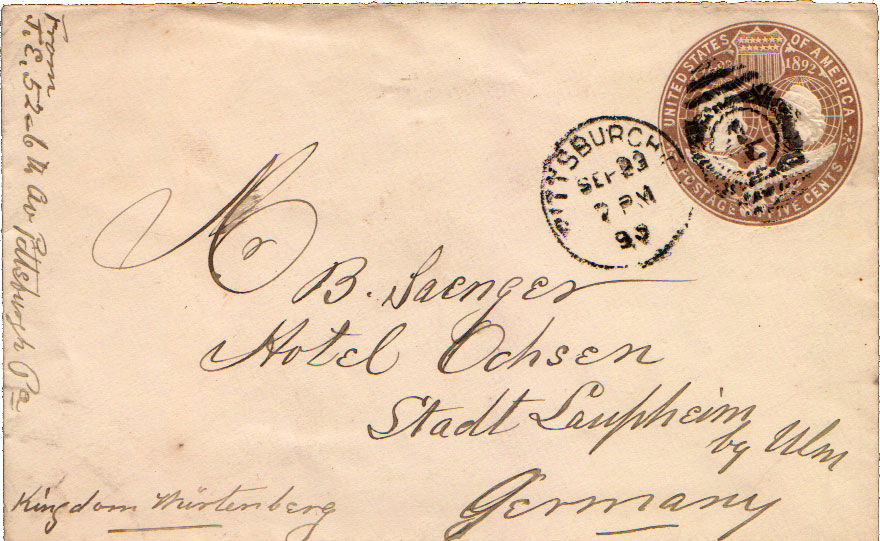 From
J. E. 52-6th Av Pittsburgh Pa
UNITED STATES OF AMERICA
1892
POSTAGE FIVE CENTS
PITTSBURGH
SEP 23
7 PM
93
Mr
B. Saenger
Hotel Ochsen
Stadt Laupheim
by Ulm
Germany
Kingdom Würtenberg